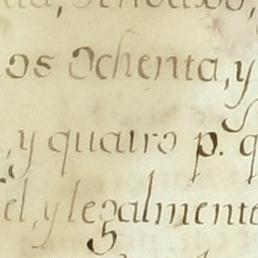 os ochenta, y
, y quatro p.
el, y legalmente